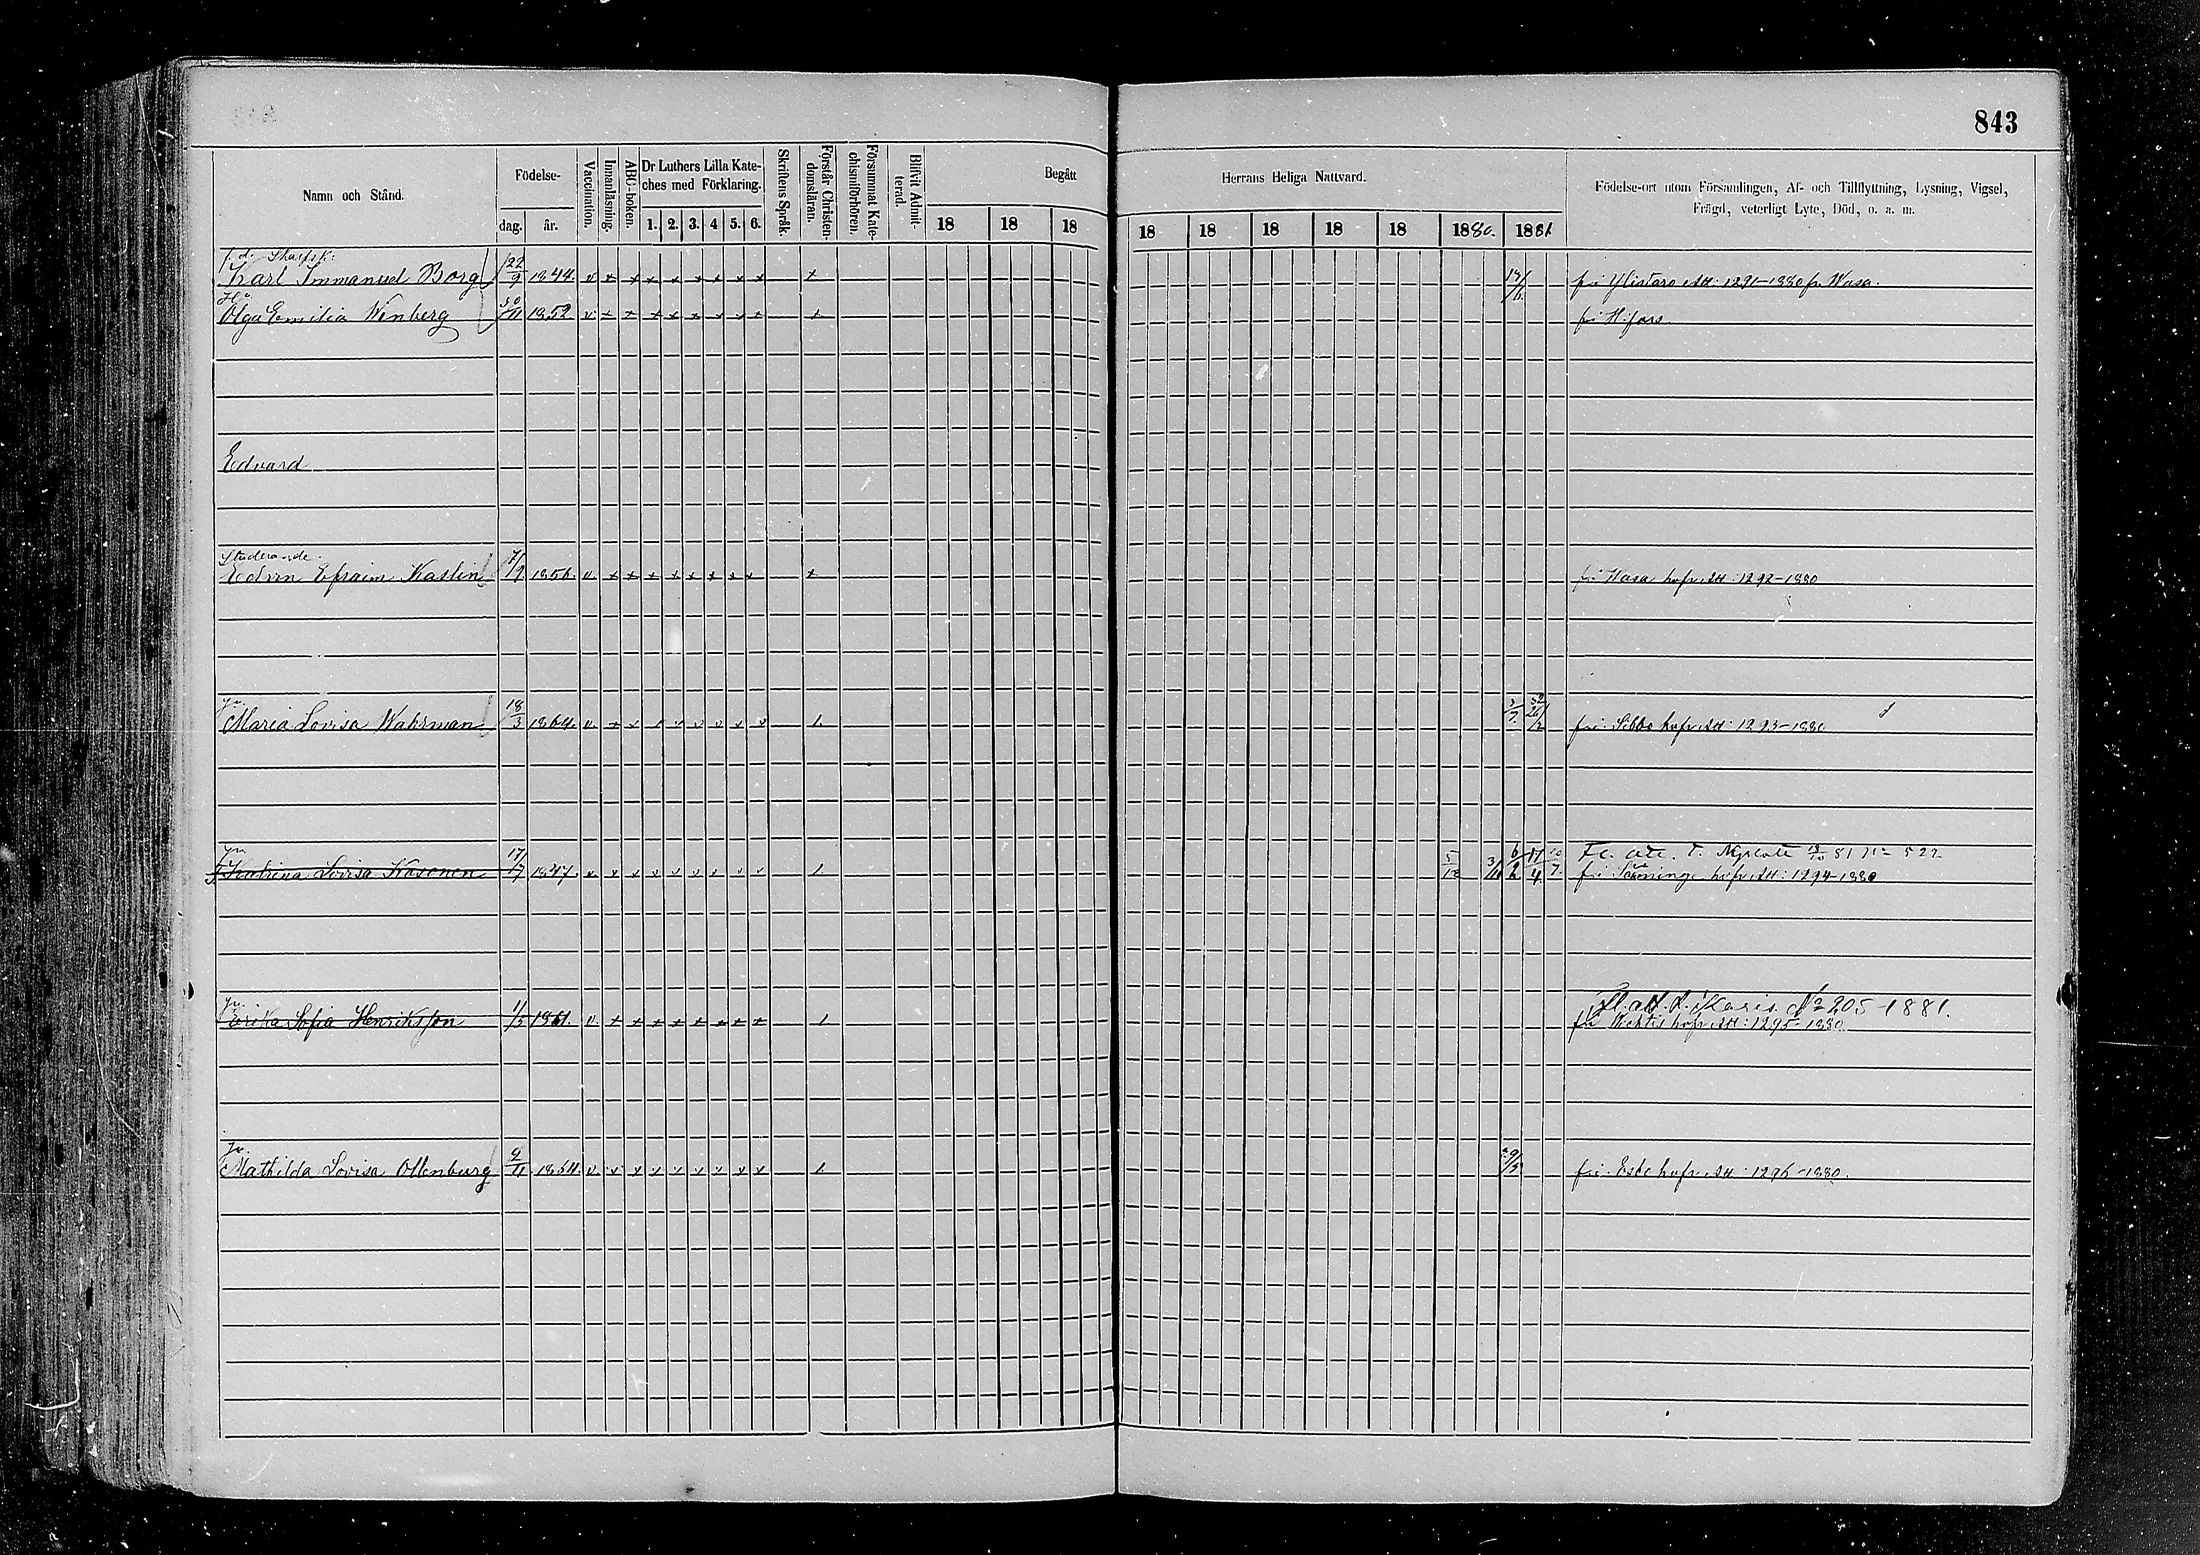 843
Namn och Stånd.
Födelse-
dag. år.
Vaccination.
Innanläsning.
ABC-boken.
Dr Luthers Lilla Kate-
ches med Förklaring.
1. 2. 3. 4 5. 6.
Skriftens Språk.
Förstår Christen-
domsläran.
Försummat Kate-
chismiförhören.
Blifvit Admit-
terad.
Begått
18 18 18
Herrans Heliga Nattvard.
18 18 18 18 18 1880. 1881.
Födelse-ort utom Församlingen, Af- och Tillflyttning, Lysning, Vigsel,
Frägd, veterligt Lyte, Död, o. a. m.
f. d. Skarpsk:
Karl Immanuel Borg 22/9 1844. v x x x x x x x x x 17/6 fr: Ylistaro Att: 1291-1880 fr. Wasa.
Hu
Olga Emilia Wenberg 30/11 1852 v x x x x x x x x x fr: H:fors
Edvard
Studerande.
Edvin Efraim Kaslin 7/9 1856 v x x x x x x x x x fr: Wasa hofr. Att: 1292-1880
Jn.
Maria Lovisa Wahrman 18/3 1864 fr: Sibbo hofr. Att: 1293-1880
Jn
Katrina Lovisa Kasonen 17/7 1847. 5/12 3/10 6/2 17/4 10/7 81 No 522
fr: Sääminge hofr. Att: 1294-1880
Jn.
Erika Sofia Henriksson 1/5 1861. v x x x x x x x x Fl. att. t. Karis No 205-1881.
fr: Wichtis hofr. Att: 1295-1880
Jn.
Mathilda Lovisa Ollenburg 9/11 1854. 29/5 fr: Esbo hofr. Att: 1296-1880.